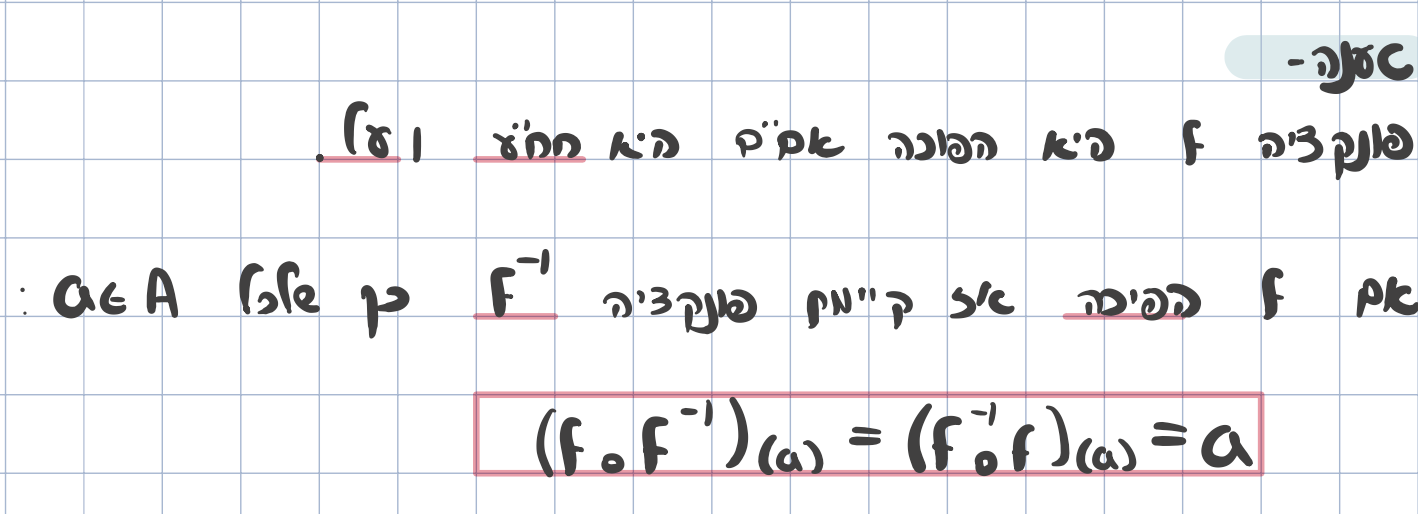 טענה -
פונקציה f היא הפוכה אם״ם היא חח״ע ו על.
אם f הפיכה אז קיימת פונקציה f⁻¹ כך שלכל a∈A :
(f∘f⁻¹)(a) = (f⁻¹∘f)(a) = a